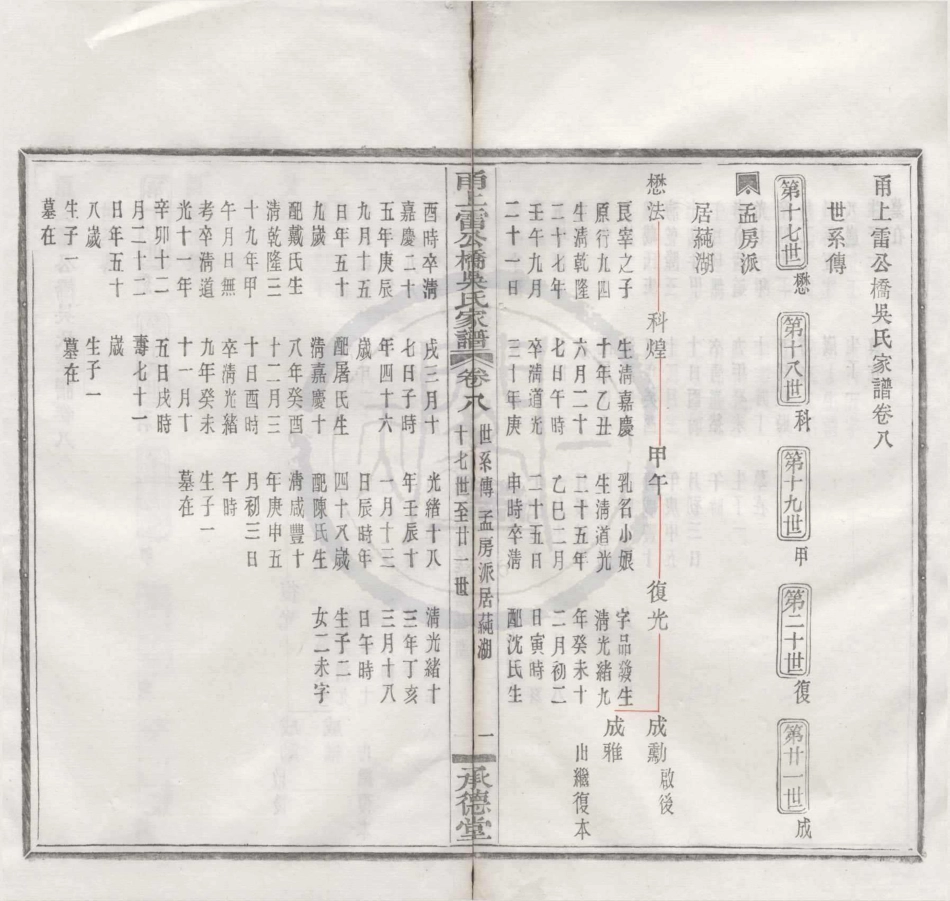 甬上雷公橋吳氏家譜卷八
世系傳
第十七世 懋 第十八世 科 第十九世 甲 第二十世 復 第廿一世 成
孟房派
居蒓湖
懋法
良宰之子
原行九四
生清乾隆
二十七年
壬午九月
二十一日
酉時卒清
嘉慶二十
五年庚辰
九月十五
日年五十
九歲
配戴氏生
清乾隆三
十九年甲
午月日無
考卒清道
光十一年
辛卯十二
月二十二
日年五十
八歲
生子一
墓在
科煌
生清嘉慶
十年乙丑
六月二十
七日午時
卒清道光
三十年庚
戌三月十
七日子時
年四十六
歲
配屠氏生
清嘉慶十
八年癸酉
十二月三
十日酉時
卒清光緒
九年癸未
十一月十
五日戌時
壽七十一
歲
生子一
墓在
甲午
乳名小娘
生清道光
二十五年
乙巳二月
二十五日
申時卒清
光緒十八
年壬辰十
一月十三
日辰時年
四十八歲
配陳氏生
清咸豐十
年庚申五
月初三日
午時
生子一
墓在
復光
字品發生
清光緒九
年癸未十
二月初二
日寅時
配沈氏生
清光緒十
三年丁亥
三月十八
日午時
生子二
女二未字
成勳 啟後
成雅
出繼復本
甬上雷公橋吳氏家譜 卷八
世系傳 孟房派居蒓湖
十七世至廿一世
一
承德堂